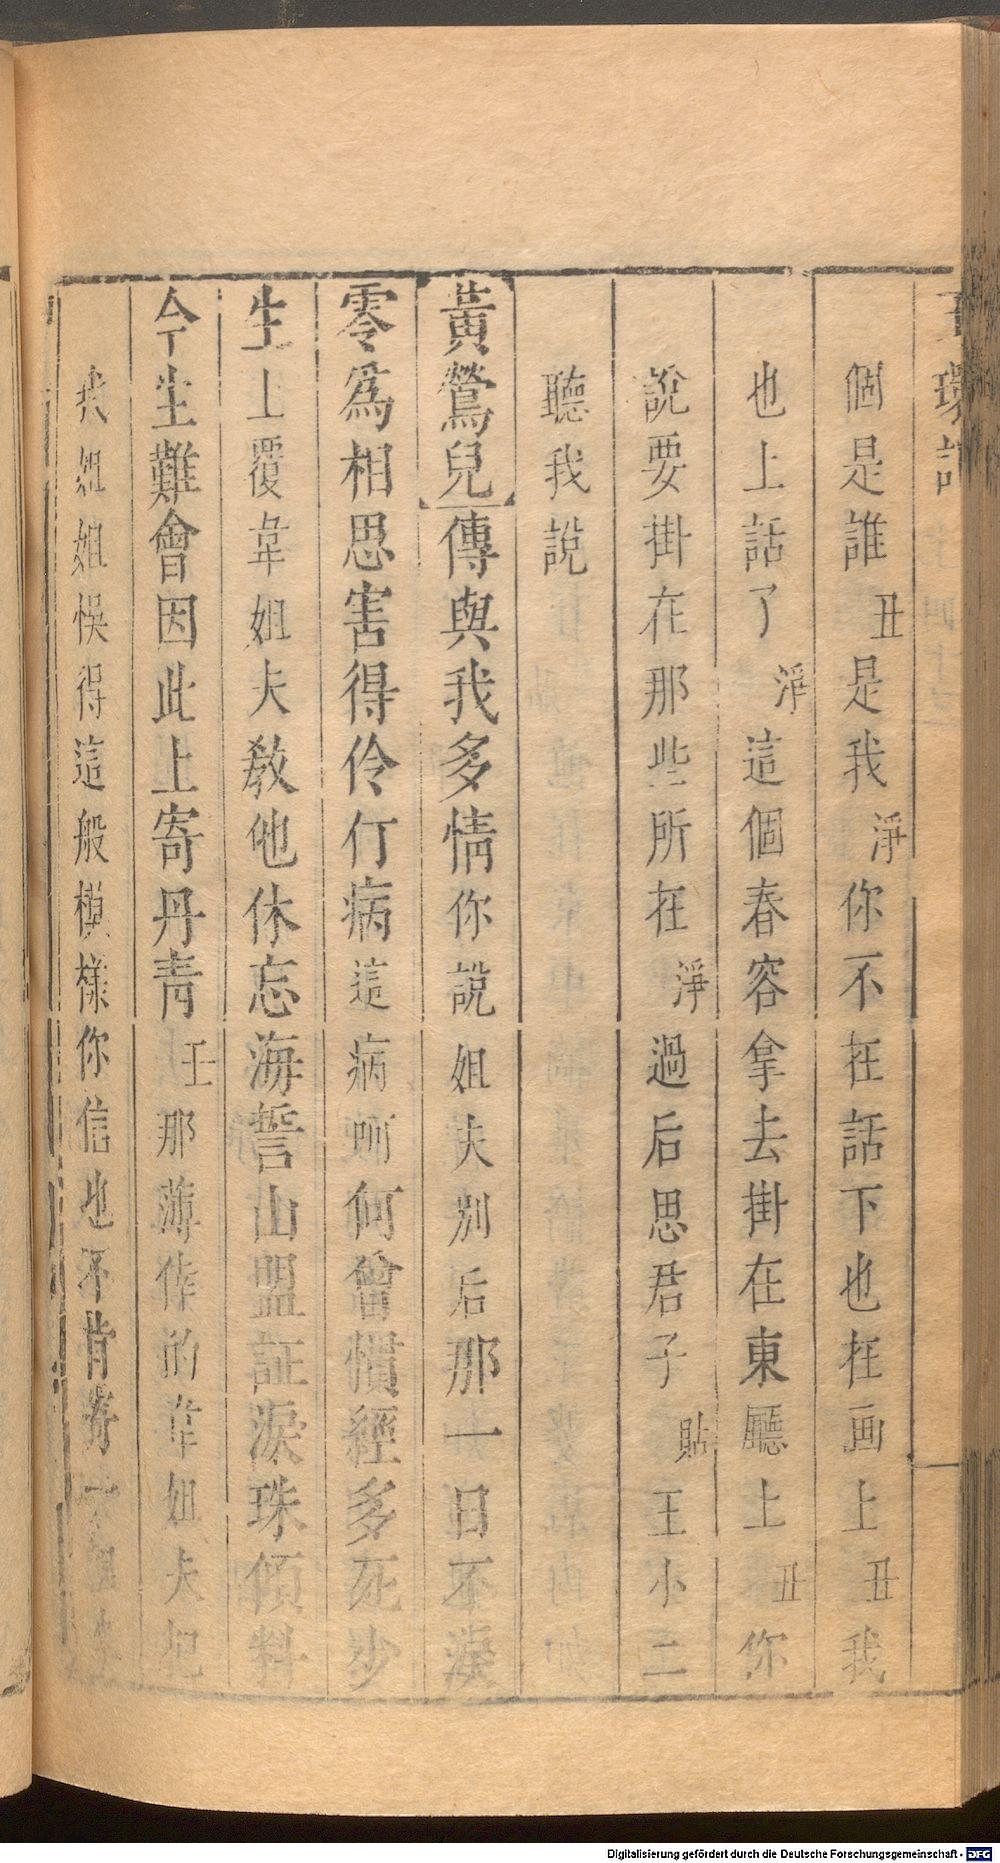 個是誰丑是我淨你不在話下也在画上丑我
也上話了淨這個春容拿去掛在東廳上丑你
說要掛在那些所在淨過后思君子貼王小二
聽我說
黃鶯兒傳與我多情你說姐夫別后那一日不淚
零為相思害得伶仃病這病呵何曾慣經多死少
生上覆韋姐夫教他休忘海誓山盟証淚珠傾料
今生難會因此上寄丹青王那薄倖的韋姐夫把
我姐姐悞得這般模樣你信也不肯寄一
Digitalisierung gefördert durch die Deutsche Forschungsgemeinschaft - DFG